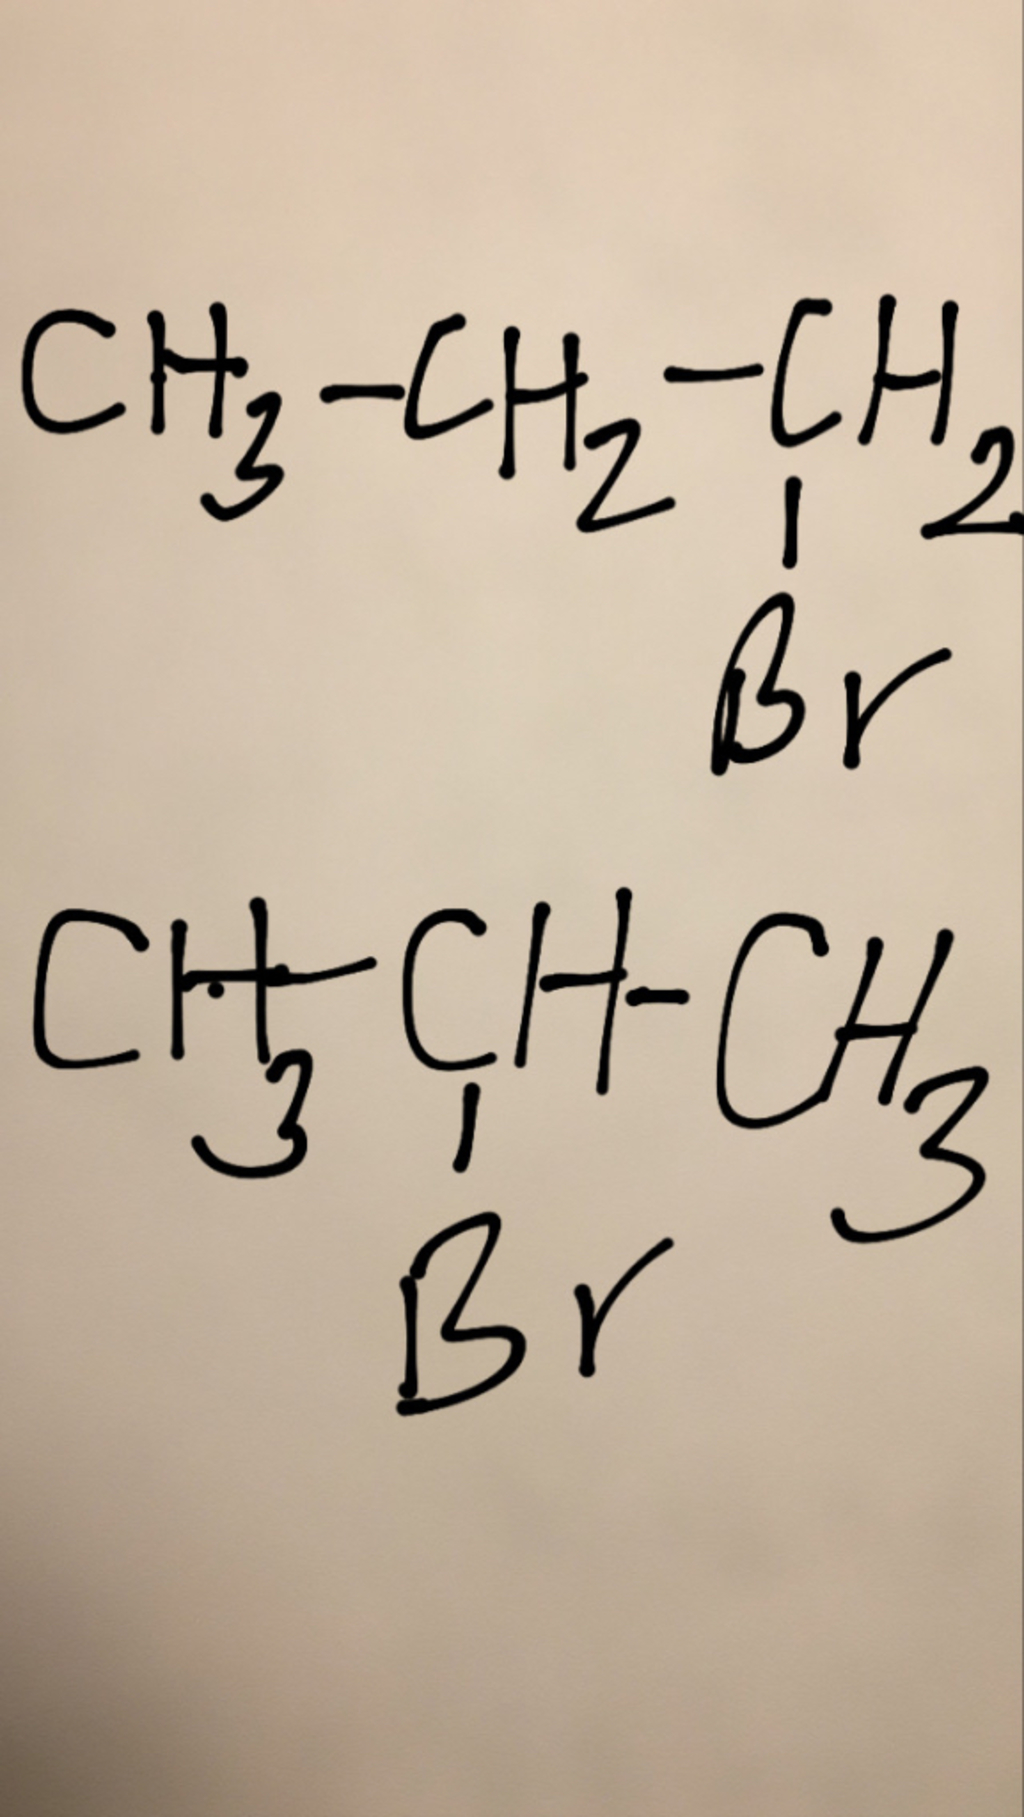 CH3-CH2-CH2
|
Br
CH3-CH-CH3
|
Br